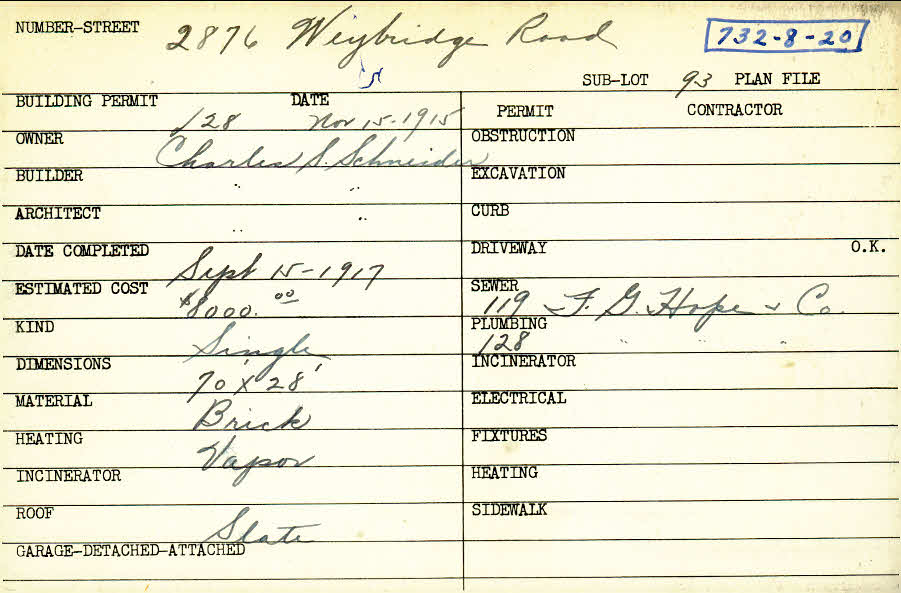 NUMBER-STREET 2876 Weybridge Road 732-8-20
SUB-LOT 93 PLAN FILE
BUILDING PERMIT 128 DATE Nov 15-1915 PERMIT CONTRACTOR
OWNER Charles S. Schneider OBSTRUCTION
BUILDER " " EXCAVATION
ARCHITECT " " CURB
DATE COMPLETED Sept 15-1917 DRIVEWAY O.K.
ESTIMATED COST $8000.00 SEWER 119 F. G. Hope & Co.
KIND Single PLUMBING 128 " " "
DIMENSIONS 70' x 28' INCINERATOR
MATERIAL Brick ELECTRICAL
HEATING Vapor FIXTURES
INCINERATOR HEATING
ROOF Slate SIDEWALK
GARAGE-DETACHED-ATTACHED